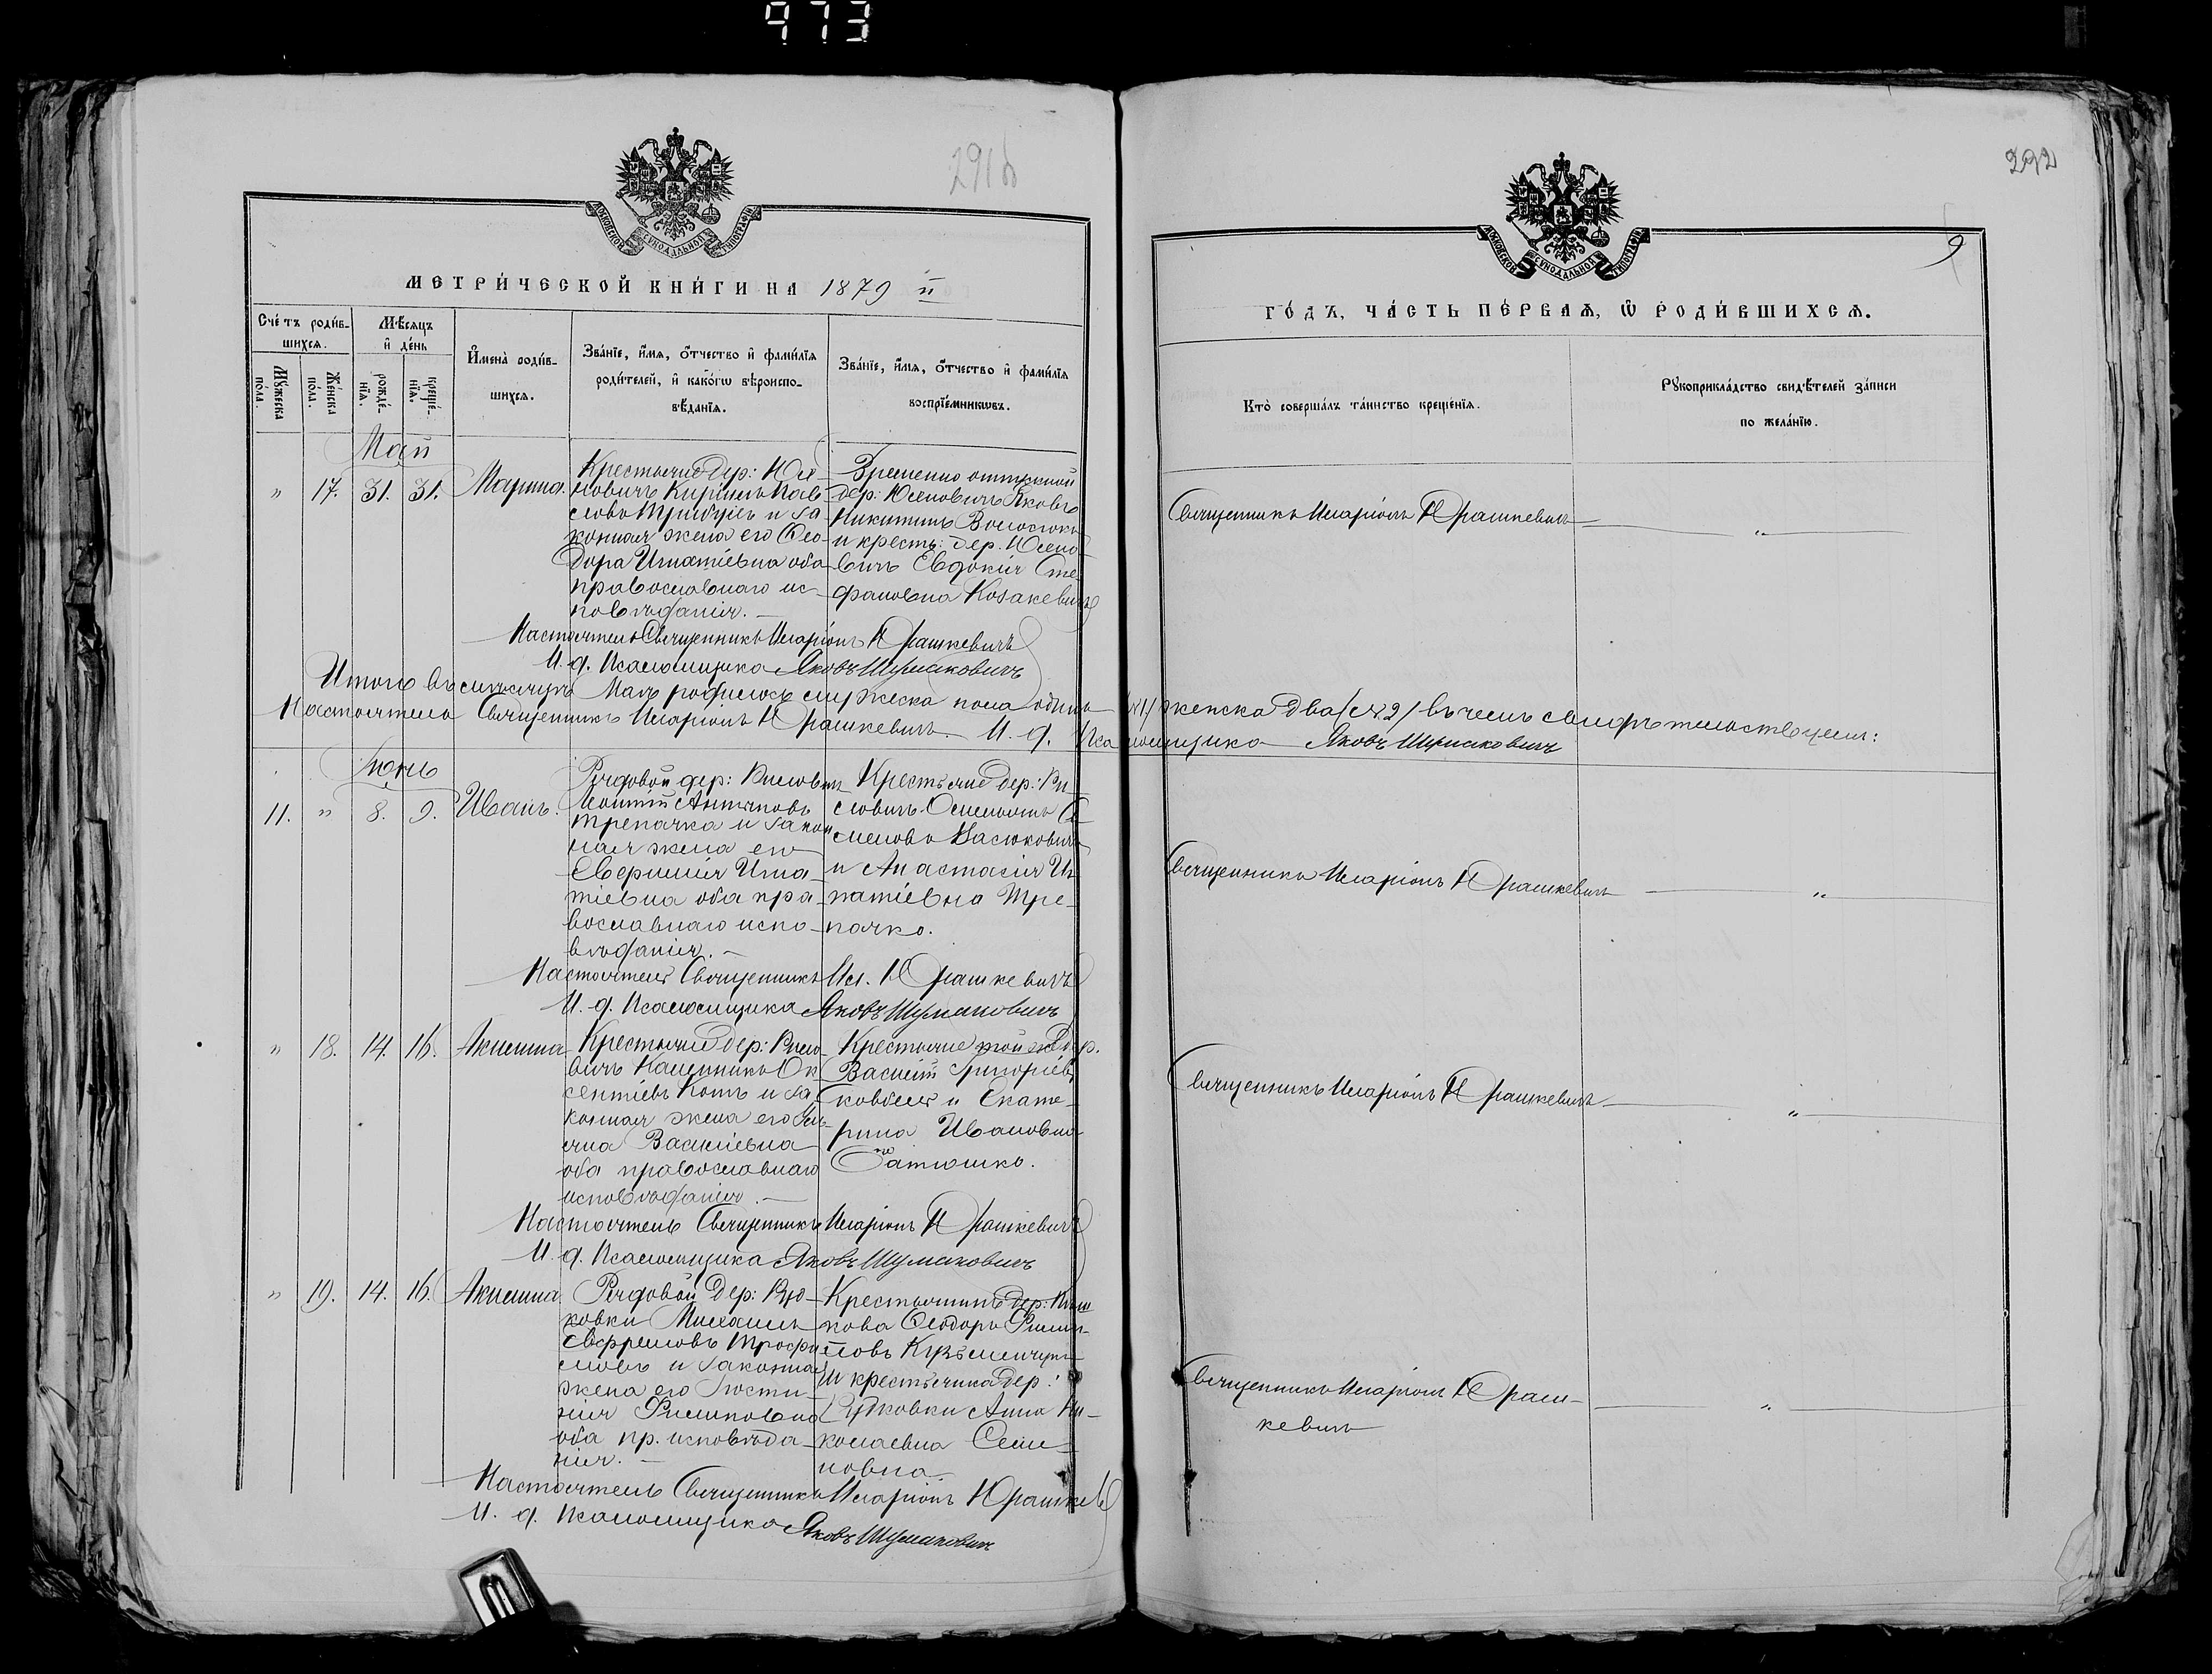 973
291об
МОСКОВСКОЙ СѴНОДАЛЬНОЙ ТИПОГРАФІИ
МЕТРИ́ЧЕСКОЙ КНИ́ГИ НА 1879 й
Сче́тъ роди́в-
шихсѧ.
Мꙋ́жеска
по́ла.
Же́нска
по́ла.
Мѣ́сѧцъ
и҆ де́нь
рожде́-
нїѧ.
креще́-
нїѧ.
И҆мена̀ роди́в-
шихсѧ.
Зва́нїе, и҆́мѧ, ѻ҆́тчество и҆ фами́лїѧ
роди́телей, и҆ како́гѡ вѣроиспо-
вѣ́данїѧ.
Зва́нїе, и҆́мѧ, ѻ҆́тчество и҆ фами́лїѧ
воспрїе́мникѡвъ.
Май
" 17. 31. 31. Марина.
Крестьяне дер:
новичъ Кириллъ Пав-
ловъ и за-
конная жена его Ѳео-
дора Игнатіевна оба
православнаго ис-
повѣданія. —
Временно отпускной
дер: Яковъ
Никитинъ
и крестн: дер.
вичъ Евдокія Сте-
фановна Козакевичъ
Настоятель Священникъ Иларіонъ Юрашкевичъ
И. д. Псаломщика Яковъ Шумаковичъ
Итого въ мѣсяцѣ Маѣ родилось мужеска пола одинъ (№1) женска два (№2) въ чемъ свидѣтельствуемъ:
Настоятель Священникъ Иларіонъ Юрашкевичъ. И. д. Псаломщика Яковъ Шумаковичъ
Іюнь
11. " 8. 9. Иванъ.
Рядовой дер:
Леонтій Антоновъ
Трепачка и закон-
ная жена его
Игна-
тіевна оба пра-
вославнаго испо-
вѣданія. —
Крестьяне дер:
Се-
меновъ Васюковичъ
и Анастасія Иг-
натіевна Тре-
пачко.
Настоятель Священникъ Ил. Юрашкевичъ
И. д. Псаломщика Яковъ Шумаковичъ
" 18. 14. 16. Акилина
Крестьяне дер:
вичъ Ок-
сентіевъ Котъ и за-
конная жена его
Василіевна
оба православнаго
исповѣданія. —
Крестьяне той же дер.
Василій Григоріевъ
и Екате-
рина Ивановна
Настоятель Священникъ Иларіонъ Юрашкевичъ
И. д. Псаломщика Яковъ Шумаковичъ
" 19. 14. 16. Акилина
Рядовой дер:
ковки Михаилъ
Евфремовъ Трофи-
мовъ и законная
жена его Іусти-
нія Филиповна
оба пр. исповѣда-
нія. —
Крестьянинъ дер:
кова Ѳеодоръ Филип-
повъ Кузьменчукъ
и крестьянка дер:
Анна Ни-
колаевна Семе-
новна.
Настоятель Священникъ Иларіонъ Юрашкев
И. д. Псаломщика Яковъ Шумаковичъ
292
9
МОСКОВСКОЙ СѴНОДАЛЬНОЙ ТИПОГРАФІИ
ГО́ДЪ, ЧА́СТЬ ПЕ́РВАѦ, Ѽ РОДИ́ВШИХСѦ.
Кто̀ соверша́лъ та́инство креще́нїѧ.
Рꙋкоприкла́дство свидѣ́телей за́писи
по жела́нїю.
Священникъ Иларіонъ Юрашкевичъ — " —
Священникъ Иларіонъ Юрашкевичъ — " —
Священникъ Иларіонъ Юрашкевичъ — " —
Священникъ Иларіонъ Юраш- — " —
кевичъ